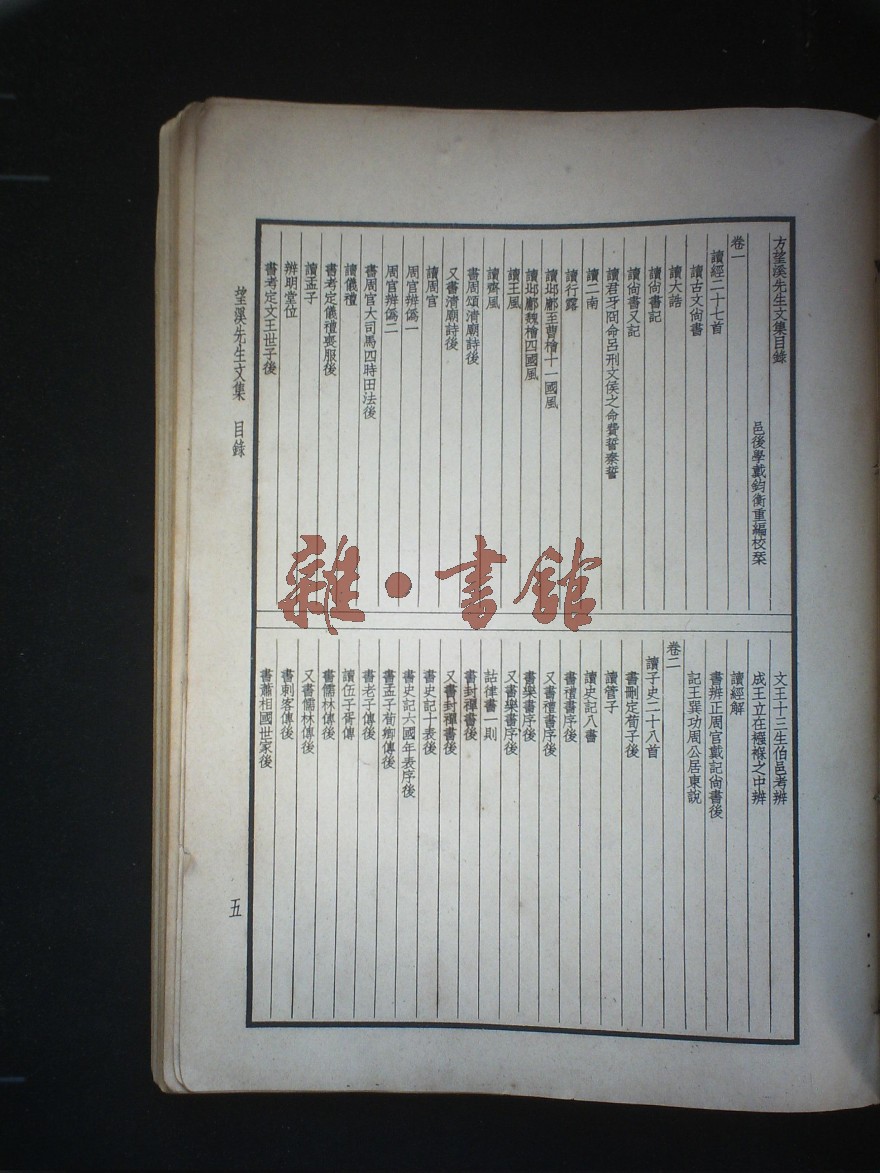 方望溪先生文集目錄
邑後學戴鈞衡重編校栞
卷一
讀經二十七首
讀古文尙書
讀大誥
讀尙書記
讀尙書又記
讀君牙冏命呂刑文侯之命費誓秦誓
讀二南
讀行露
讀邶鄘至曹檜十一國風
讀邶鄘魏檜四國風
讀王風
讀齊風
書周頌淸廟詩後
又書淸廟詩後
讀周官
周官辨僞一
周官辨僞二
書周官大司馬四時田法後
讀儀禮
書考定儀禮喪服後
讀孟子
辨明堂位
書考定文王世子後
文王十三生伯邑考辨
成王立在襁褓之中辨
讀經解
書辨正周官戴記尙書後
記王巽功周公居東說
卷二
讀子史二十八首
書刪定荀子後
讀管子
讀史記八書
書禮書序後
又書禮書序後
書樂書序後
又書樂書序後
詁律書一則
書封禪書後
又書封禪書後
書史記十表後
書史記六國年表序後
書孟子荀卿傳後
書老子傳後
讀伍子胥傳
書儒林傳後
又書儒林傳後
書刺客傳後
書蕭相國世家後
望溪先生文集 目錄
五
雜·書館